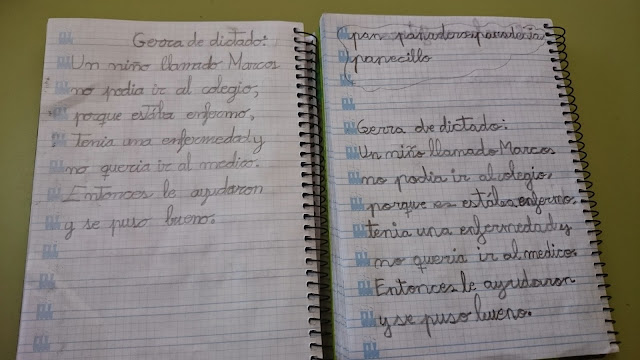 Gerra de dictado:
Un niño llamado Marcos
no podia ir al colegio,
porque estaba enfermo.
Tenia una enfermedad y
no queria ir al medico.
Entonces le ayudaron
y se puso bueno.
pan panadero panaderia
panecillo
Gerra de dictado:
Un niño llamado Marcos
no podia ir al colegio,
porque estaba enfermo.
tenia una enfermedad y
no queria ir al medico.
Entonces le ayudaron
y se puso bueno.